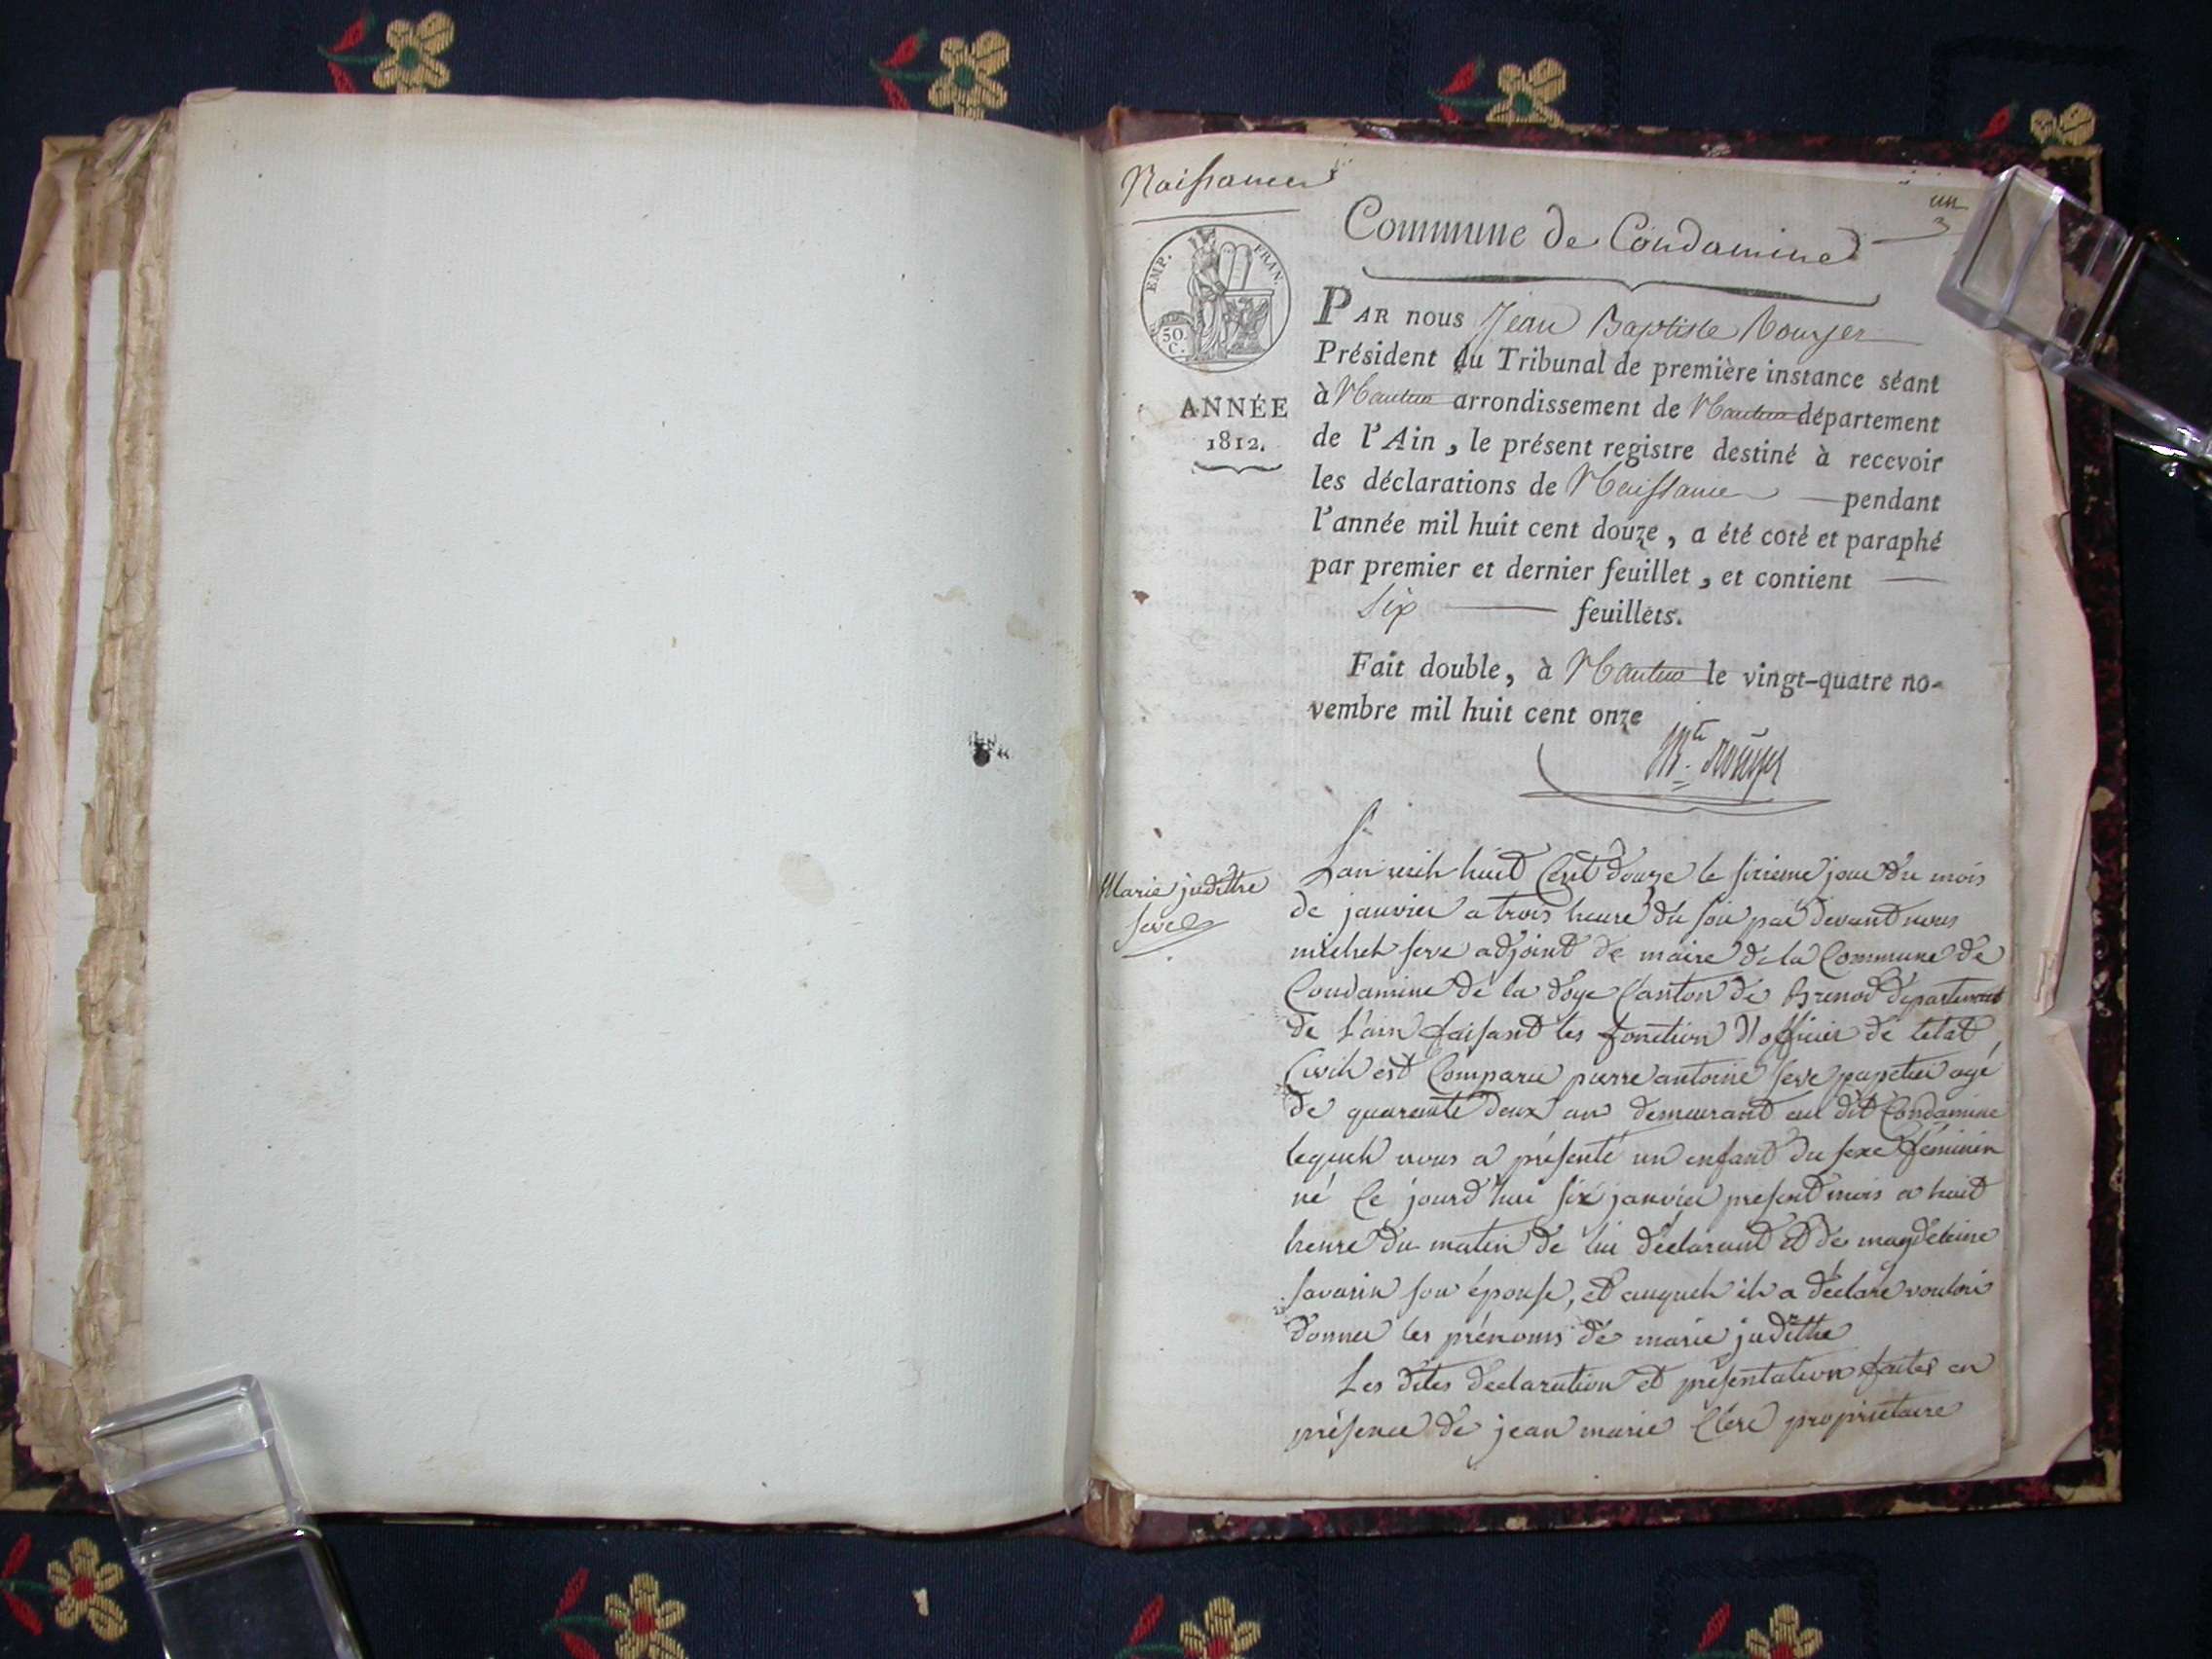 Naissances
un
Commune de Condamine
EMP. FRAN.
50. C.
ANNÉE
1812.
PAR nous Jean Baptiste Rouyer
Président du Tribunal de première instance séant
à Nantua arrondissement de Nantua département
de l'Ain, le présent registre destiné à recevoir
les déclarations de Naissance pendant
l'année mil huit cent douze, a été coté et paraphé
par premier et dernier feuillet, et contient
Six feuillets.
Fait double, à Nantua le vingt-quatre no-
vembre mil huit cent onze
Marie judithe
serve
L'an mil huit Cent douze le sixieme jour du mois
de janvier a trois heure du soir par devant nous
michel serve adjoint de maire de la Commune de
Condamine de la doye Canton de Brenod departement
de l'ain faisant les fonction d'officier de letat
Civil est Comparu pierre antoine serve papetier agé
de quarente deux an demeurant au dit Condamine
lequel nous a présenté un enfant du sexe féminin
né Ce jourd'hui six janvier present mois a huit
heure du matin de lui déclarant et de magdeleine
savarin son épouse, et auquel il a déclaré vouloir
donner les prénoms de marie judithe
Les dites declaration et présentation faites en
présence de jean marie Clerc propriétaire